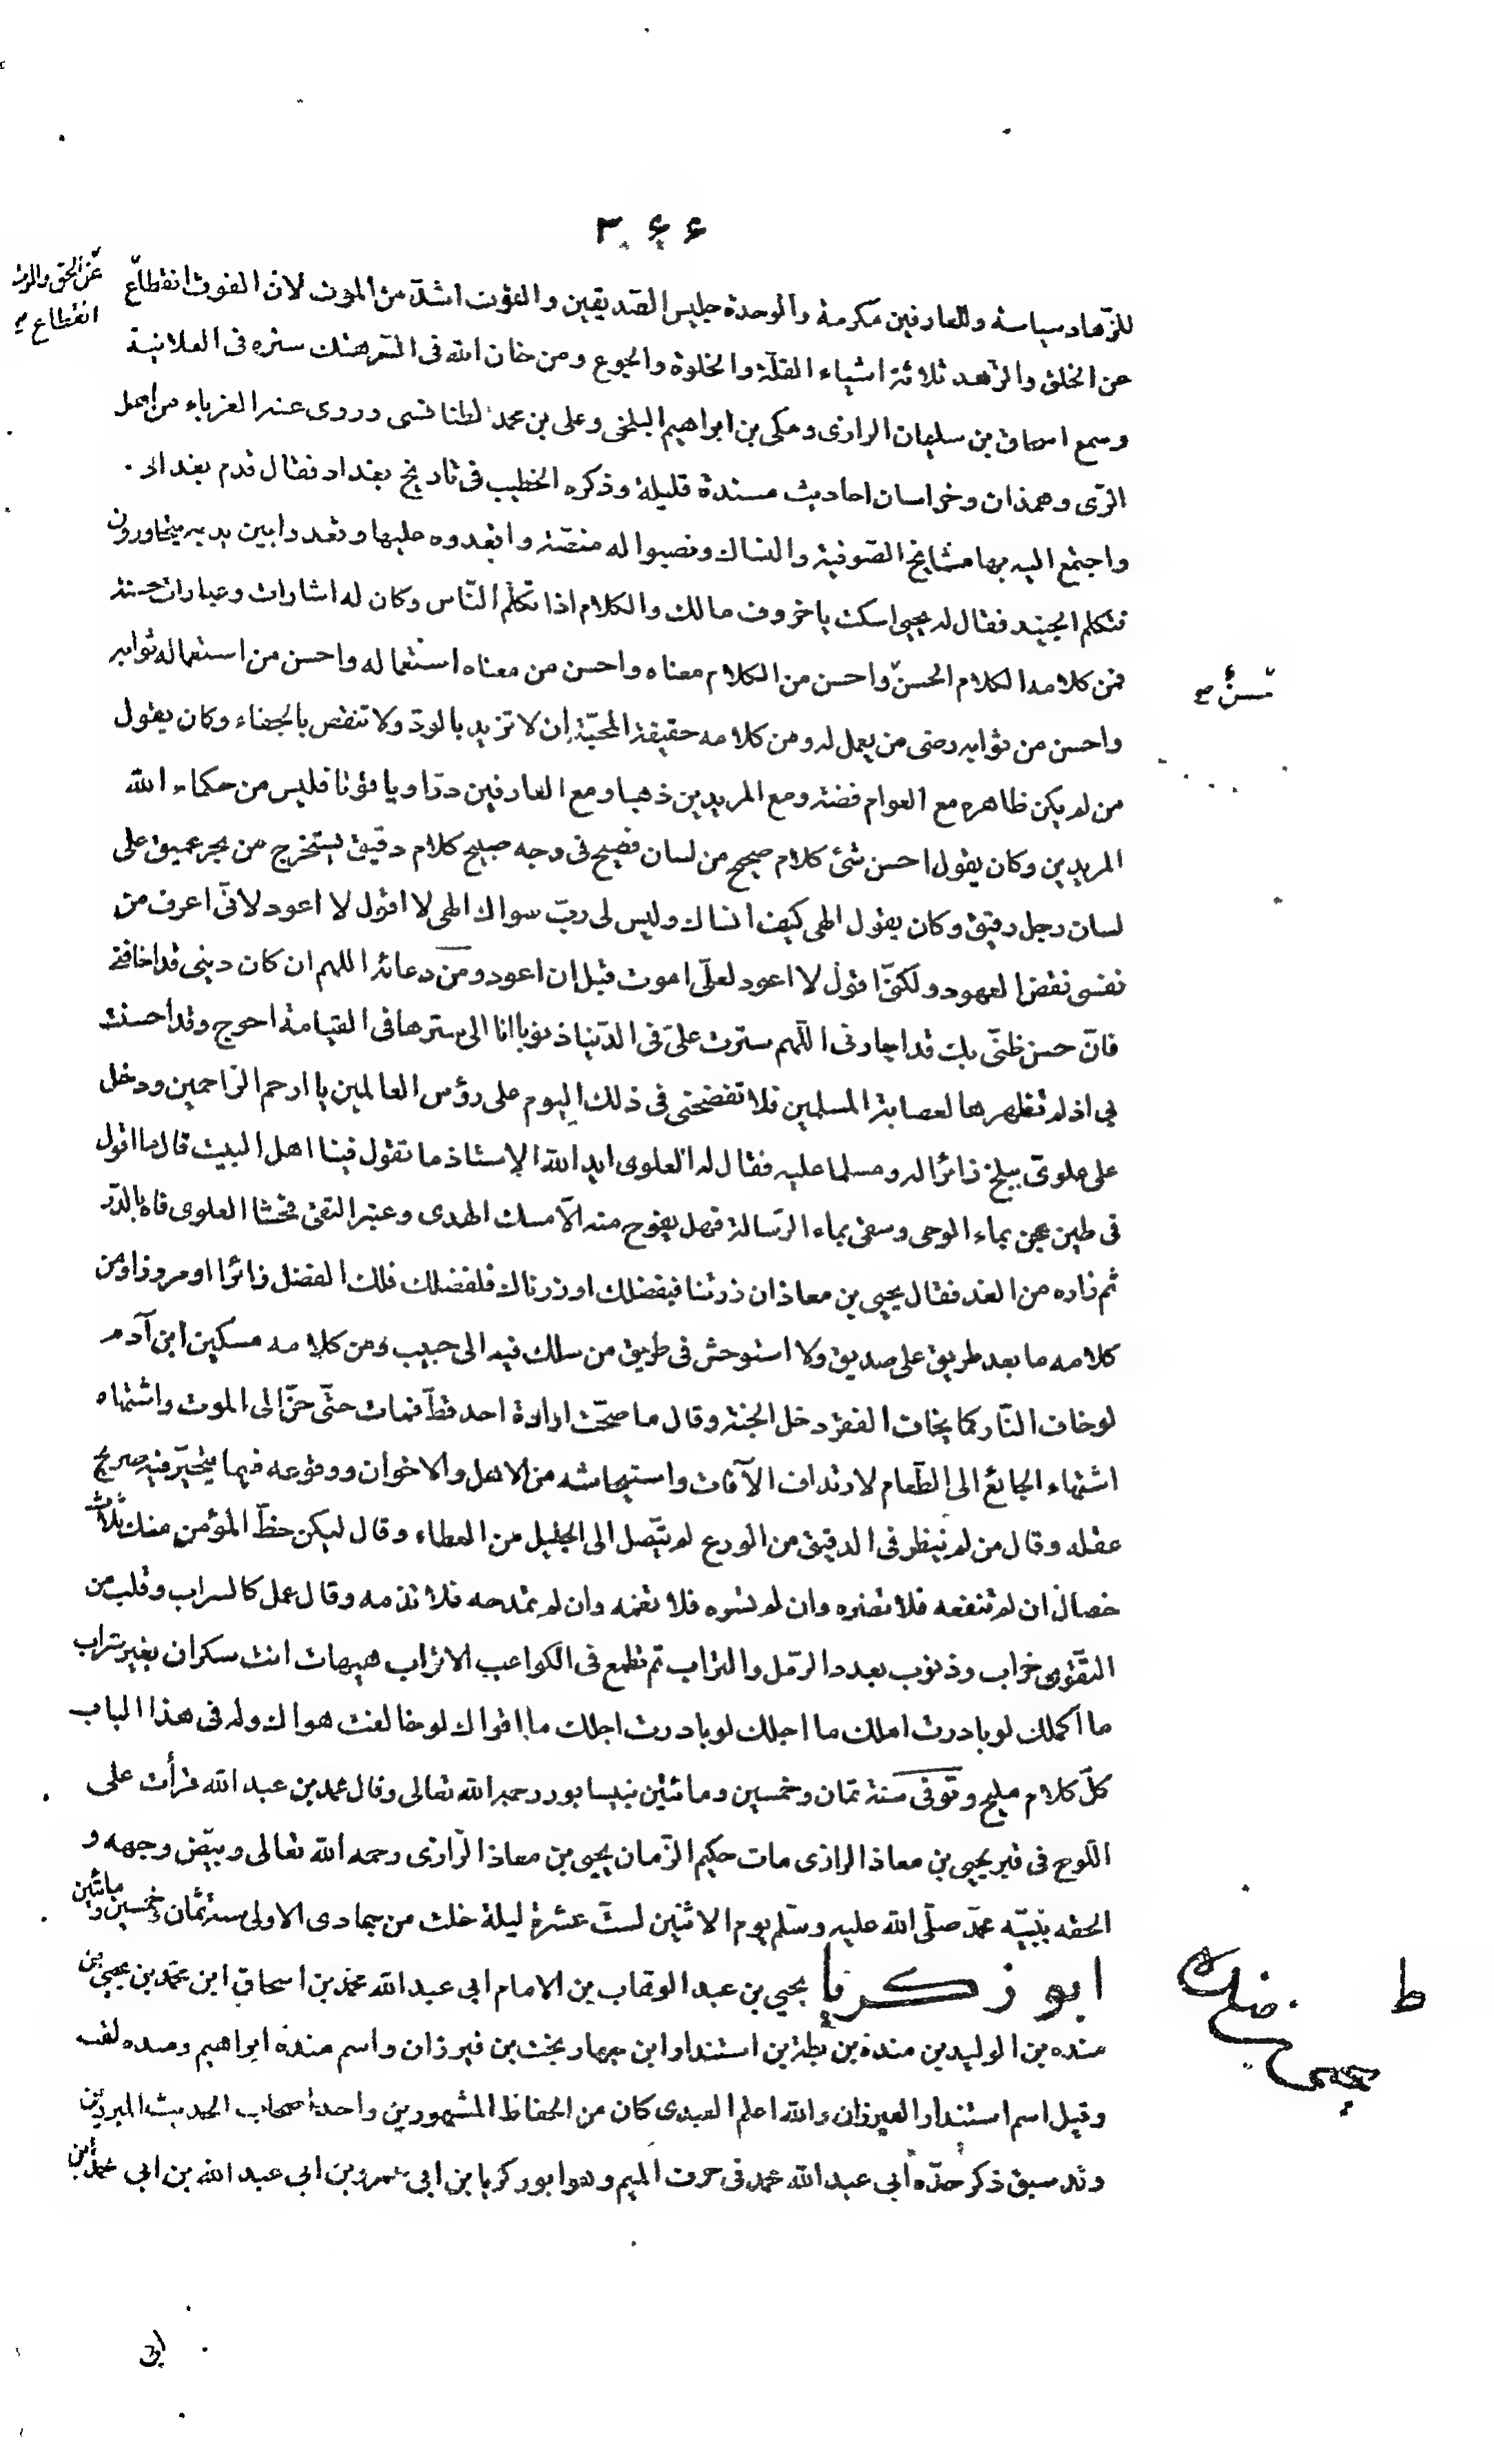 ٣٤٤
للزهاد سياسة وللعارفين مكرمة والوحدة جليس الصديقين والفوت اشدّ من الموت لان الفوت انقطاع
عن الحق والموت
انقطاع صح
عن الخلق والزهد ثلاثة اشياء القلّة والخلوة والجوع ومن خان الله فى السّر هتك ستره فى العلانية
وسمع اسحاق بن سليمان الرازى ومكى بن ابراهيم البلخى وعلى بن محمد الطنافسى وروى عنه الغرباء من اهل
الرّى وهمذان وخراسان احاديث مسندة قليلة وذكره الخطيب فى تاريخ بغداد فقال قدم بغداد
واجتمع اليه بها مشايخ الصّوفية والنساك ونصبوا له منصّة واقعدوه عليها وقعدوا بين يديه يتحاورون
فتكلم الجنيد فقال له يحيى اسكت ياخروف مالك والكلام اذا تكلّم النّاس وكان له اشارات وعبارات حسنة
فمن كلامه الكلام الحسن واحسن من الكلام معناه واحسن من معناه استعماله واحسن من استعماله ثوابه
واحسن من ثوابه رضى من يعمل له ومن كلامه حقيقة المحبّة ان لا تزيد بالودّ ولا تنقص بالجفاء وكان يقول
من لم يكن ظاهره مع العوام فضة ومع المريدين ذهبا ومع العارفين درّا وياقوتا فليس من حكماء الله
المريدين وكان يقول احسن شئ كلام صحيح من لسان فصيح فى وجه صبيح كلام دقيق يستخرج من بحر عميق على
لسان رجل رفيق وكان يقول الهى كيف انساك وليس لى ربّ سواك الهى لا اقول لا اعود لانّى اعرف من
نفسى نقض العهود ولكنّى اقول لا اعود لعلّى اموت قبل ان اعود ومن دعائه اللهم ان كان ذنبى قد اخافنى
فانّ حسن ظنّى بك قد اجارنى اللّهم سترت علىّ فى الدّنيا ذنوبا انا الى سترها فى القيامة احوج وقد احسنت
بى اذ لم تظهرها لعصابة المسلمين فلا تفضحنى فى ذلك اليوم على رؤس العالمين يا ارحم الرّاحمين ودخل
على علوىّ ببلخ زائرا له ومسلما عليه فقال له العلوى ايد الله الاستاذ ما تقول فينا اهل البيت قال ما اقول
فى طين عجن بماء الوحى وسقى بماء الرّسالة فهل يفوح منه الّا مسك الهدى وعنبر التقى فحشا العلوى فاه بالدّر
ثم زاره من الغد فقال يحيى بن معاذ ان زرتنا فبفضلك او زرناك فلفضلك فلك الفضل زائرا او مزورا ومن
كلامه ما بعد طريق على صديق ولا استوحش فى طريق من سلك فيه الى حبيب ومن كلامه مسكين ابن آدم
لو خاف النّار كما يخاف الفقر دخل الجنة وقال ما صحّت ارادة احد قطّ فمات حتّى حنّ الى الموت واشتهاه
اشتهاء الجائع الى الطّعام لارتداف الآفات واستيحاشه من الاهل والاخوان ووقوعه فيما يتحيّر فيه صريح
عقله وقال من لم ينظر فى الدقيق من الورع لم يتّصل الى الجليل من العطاء وقال ليكن حظّ المؤمن منك ثلاث
خصال ان لم تنفعه فلا تضره وان لم تسره فلا تغمه وان لم تمدحه فلا تذمه وقال عمل كالسراب وقلب من
التقوى خراب وذنوب بعدد الرمّل والتراب ثم تطمع فى الكواعب الاتراب هيهات انت سكران بغير شراب
ما اكملك لو بادرت املك ما اجلك لو بادرت اجلك ما اقواك لو خالفت هواك وله فى هذا الباب
كلّ كلام مليح وتوفى سنة ثمان وخمسين ومائتين بنيسابور رحمه الله تعالى وقال محمد بن عبد الله قرأت على
اللّوح فى قبر يحيى بن معاذ الرازى مات حكيم الزّمان يحيى بن معاذ الرّازى رحمه الله تعالى وبيّض وجهه و
الحقه بنبيّه محمّد صلّى الله عليه وسلّم يوم الاثنين لستّ عشرة ليلة خلت من جمادى الاولى سنة ثمان وخمسين ومائتين
ابو زكريا يحيى بن عبد الوهّاب بن الامام ابى عبد الله محمد بن اسحاق ابن محمّد بن يحيى بن
منده بن الوليد بن مندة بن بطة بن استندار ابن جهار بخت بن فيرزان واسم مندة ابراهيم ومنده لقب
وقيل اسم استندار الفيرزان والله اعلم العبدى كان من الحفاظ المشهورين واحد اصحاب الحديث المبرزين
وقد سبق ذكر جدّه ابى عبد الله محمد فى حرف الميم وهو ابو زكريا بن ابى عمرو بن ابى عبد الله بن ابى محمد بن
ط
يحيى